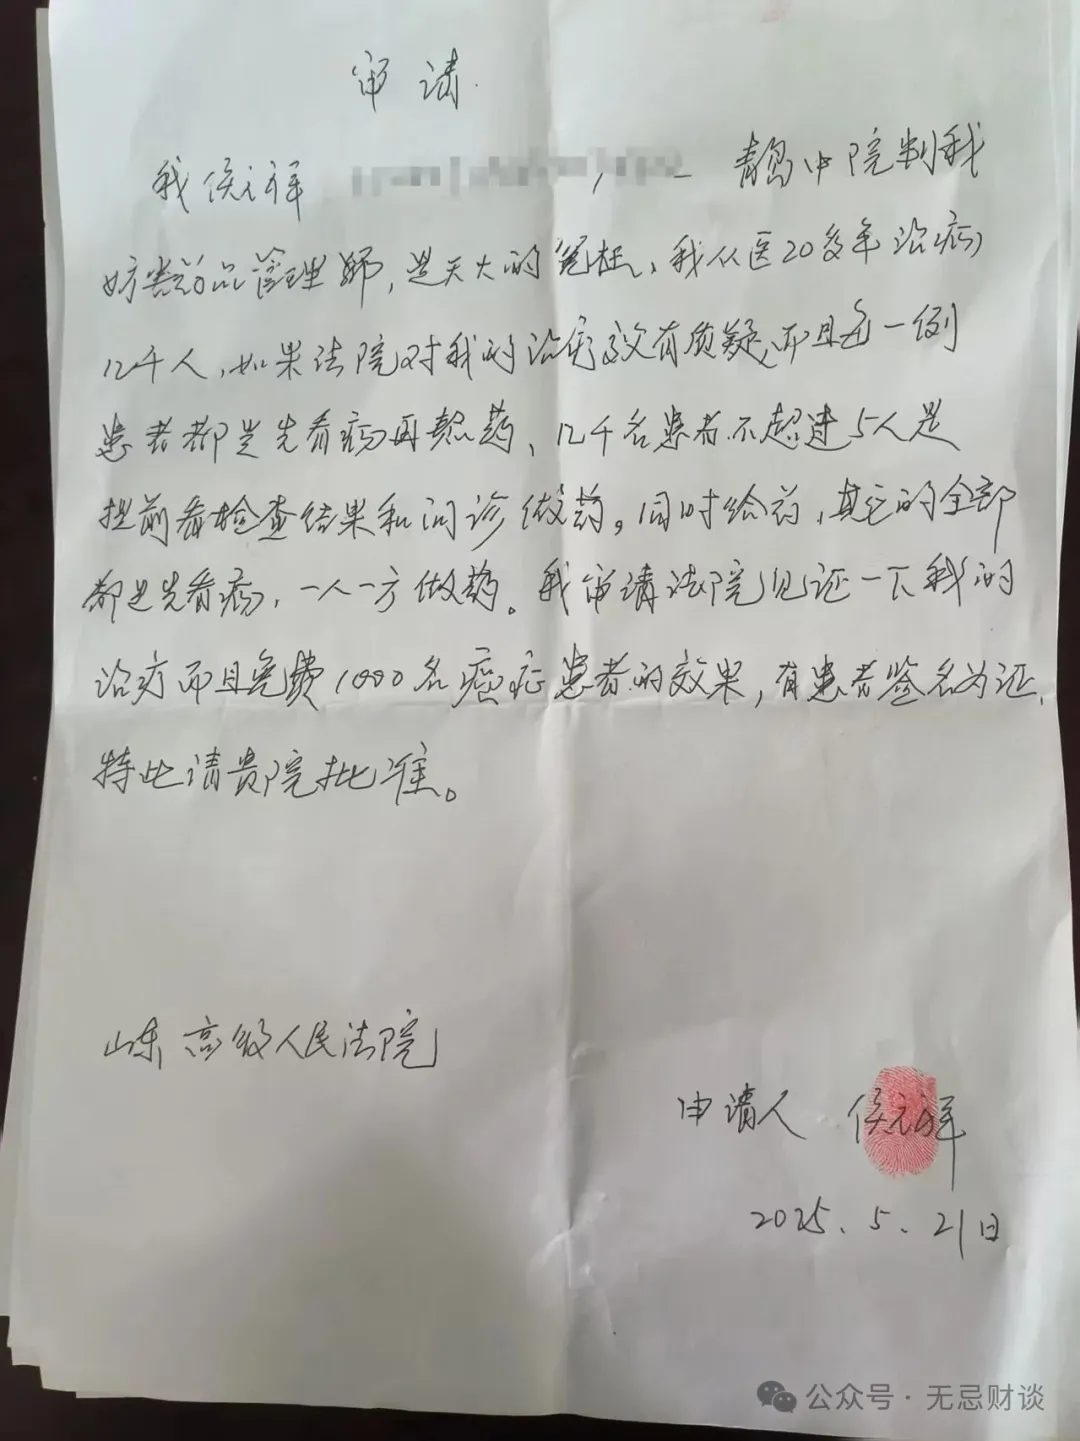 审请
我侯元祥 青岛中院判我
妨害药品管理罪，是天大的冤枉、我从医20多年治病
几千人，如果法院对我的治病效有质疑，而且每一例
患者都是先看病再熬药、几千名患者不超过5人是
提前看检查结果和问诊做药。同时给药，其它的全部
都是先看病，一人一方做药。我审请法院见证一下我的
治疗而且免费1000名癌症患者的效果，有患者签名为证.
特此请贵院批准。
山东高级人民法院
申请人 侯元祥
2025.5.21日
公众号·无忌财谈